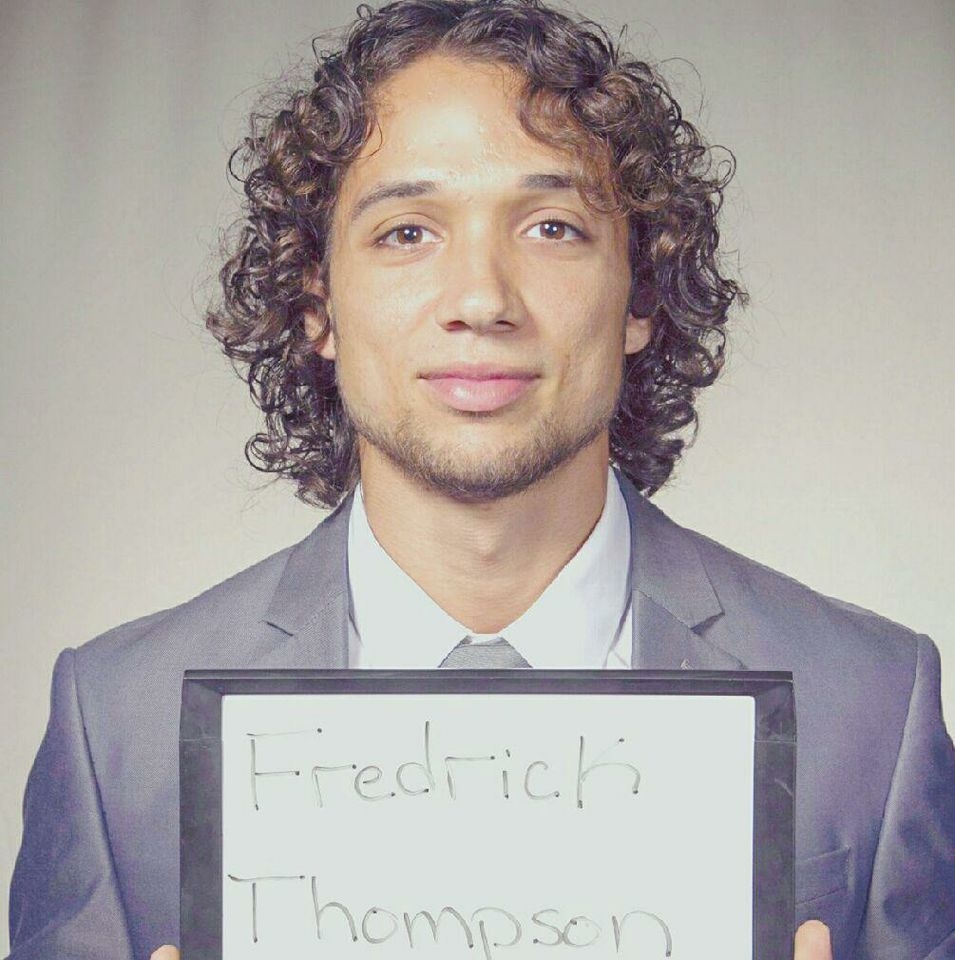 Fredrick
Thompson